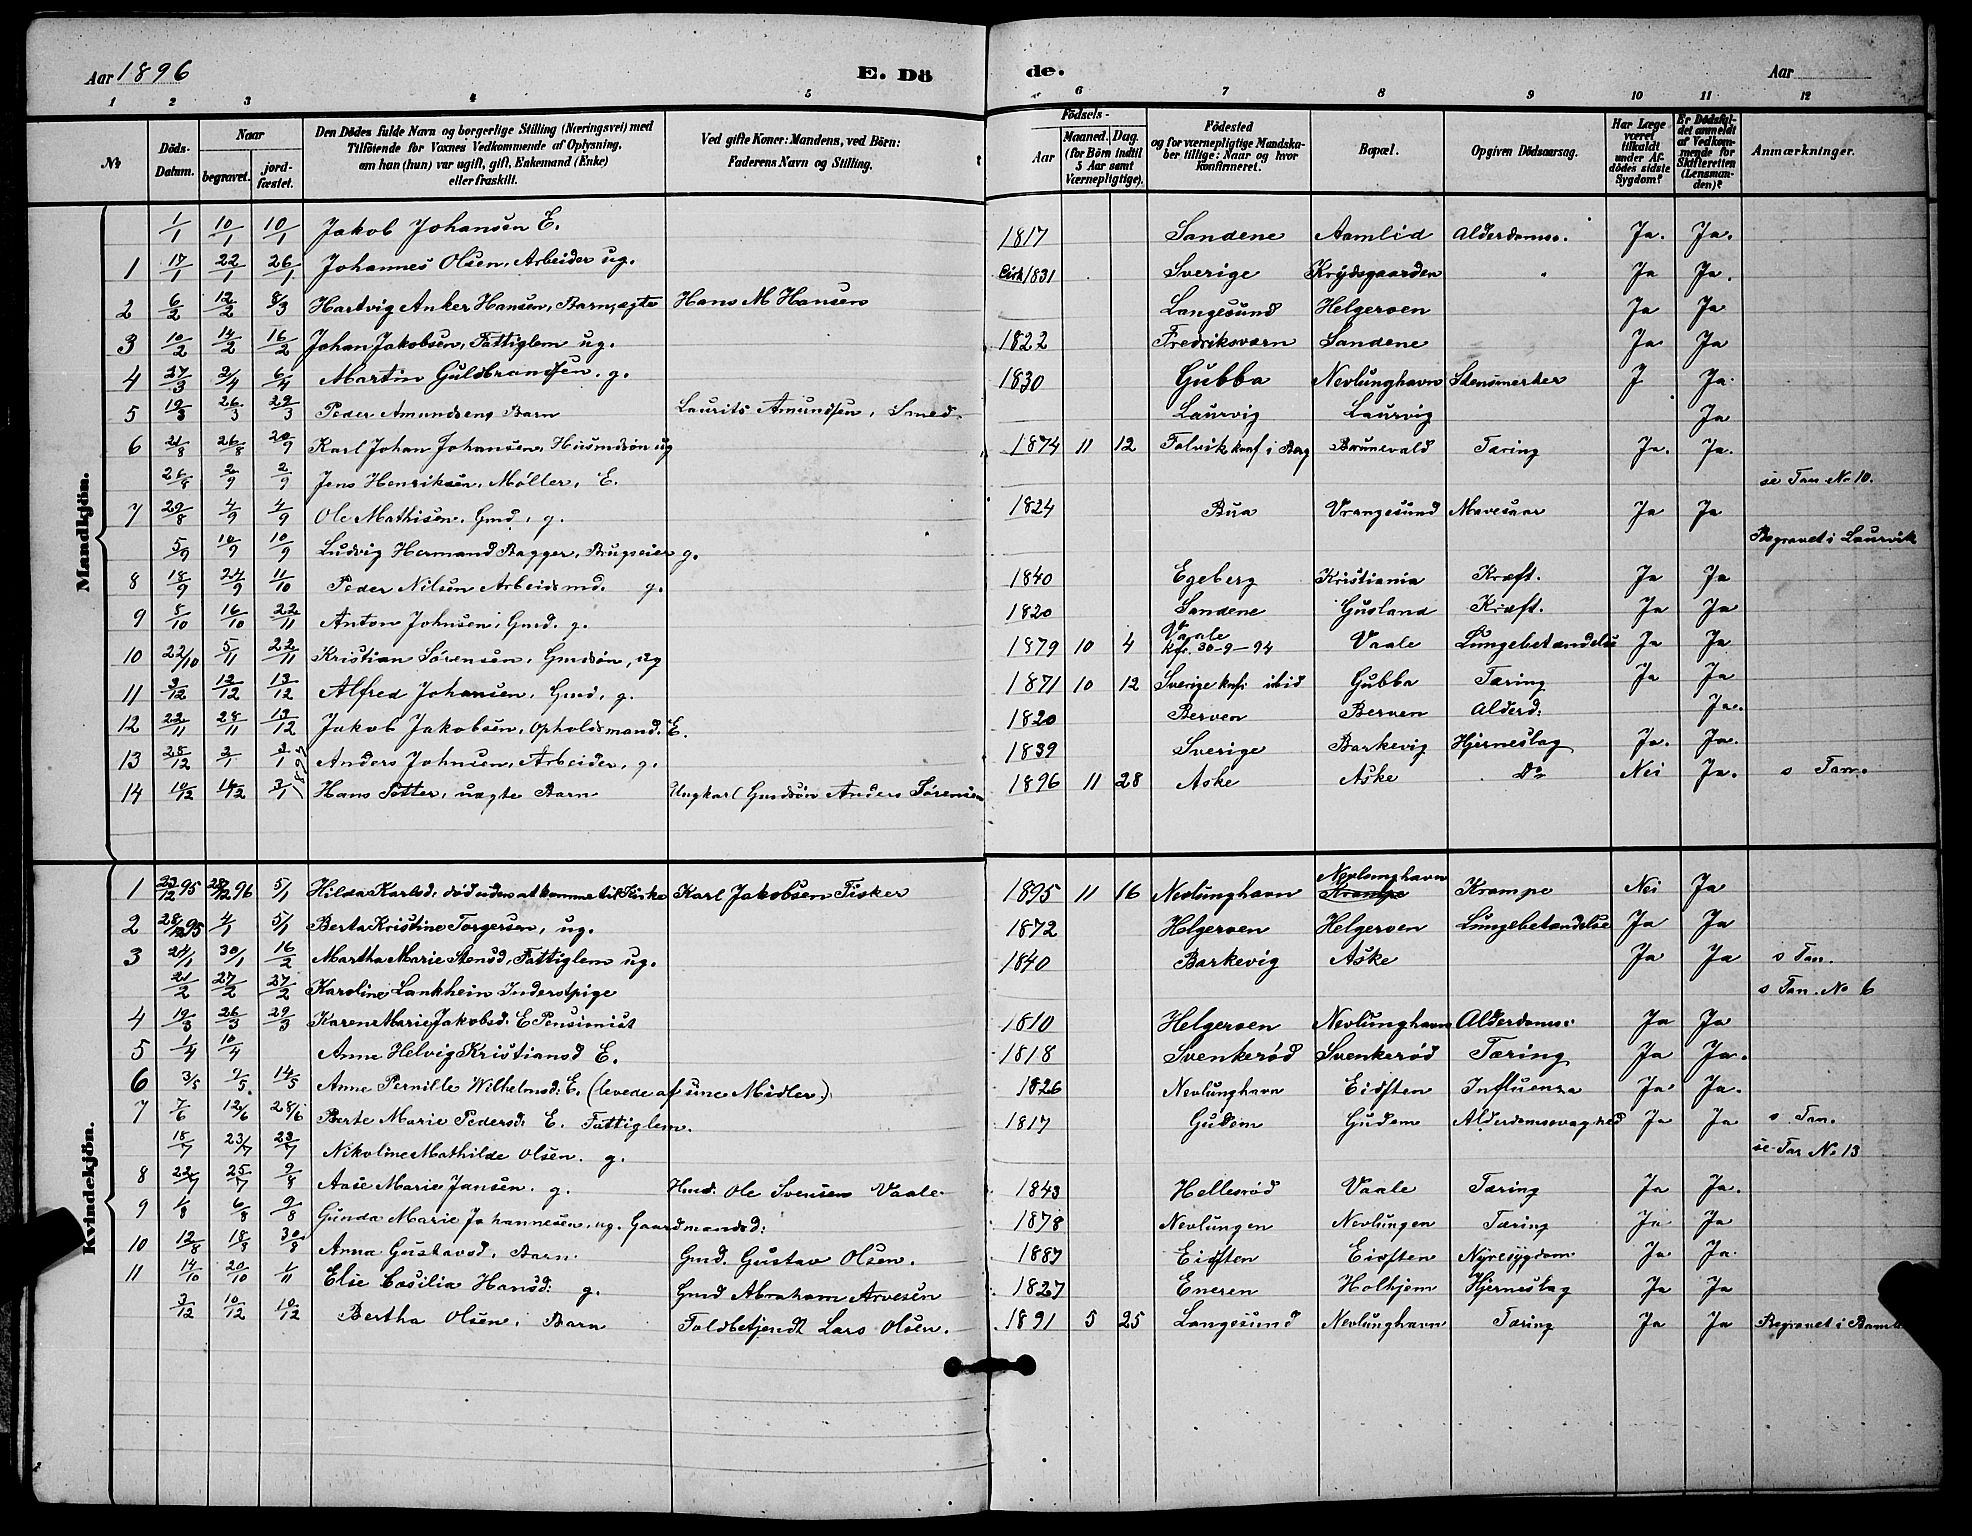 Aar 1896 E. Dö de. Aar
1 2 3 4 5 6 7 8 9 10 11 12
№ Döds-Datum. Naar begravet. jordfæstet. Den Dödes fulde Navn og borgerlige Stilling (Næringsvei) med Tilföiende for Voxnes Vedkommende af Oplysning, om han (hun) var ugift, gift, Enkemand (Enke) eller fraskilt. Ved gifte Koner: Mandens, ved Börn: Faderens Navn og Stilling. Födsels- Aar Maaned. Dag. (for Börn indtil 5 Aar samt Værnepligtige). Födested og for værnepligtige Mandskaber tillige: Naar og hvor konfirmeret. Bopæl. Opgiven Dödsaarsag. Har Læge været tilkaldt under Afdödes sidste Sygdom? Er Dödsfaldet anmeldt af Vedkommende for Skifteretten (Lensmanden)? Anmærkninger.
Mandkjön.
1/1 10/1 10/1 Jakob Johansen E. 1817 Sandene Aamlid Alderdomss. Ja. Ja.
1 17/1 22/1 26/1 Johannes Olsen, Arbeider ug. Cirk 1831 Sverige Krydsgaarden Ja Ja.
2 6/2 12/2 8/3 Hartvig Anker Hansen, Barn, ægte Hans M Hansen Langesund Helgeroen Ja Ja
3 10/2 14/2 16/2 Johan Jakobsen, Fattiglem ug. 1822 Fredriksværn Sandene Ja Ja
4 27/3 2/4 6/4 Martin Guldbrandsen. g. 1830 Gubba Nevlunghavn Stensmerter J Ja
5 19/3 26/3 29/3 Peder Amundsen, Barn Laurits Amundsen, Smed. Laurvig Laurvig Ja
6 21/8 26/8 20/9 Karl Johan Johansen, Husmdsøn ug 1874 11 12 Tolvik konf i Berg Brunevald Tæring Ja. Ja.
26/8 2/9 2/9 Jens Henriksen, Møller, E. se Tan No 10.
7 29/8 4/9 4/9 Ole Mathisen, Gmd, g. 1824 Bua Vrangesund Mavesaar Ja Ja
5/9 10/9 10/9 Ludvig Hermand Bagger, Brugseier g. Begravet i Laurvik
8 18/9 24/9 11/10 Peder Nilsen Arbeidsmd. g. 1840 Egeberg Kristiania Kræft. Ja Ja
9 8/10 16/10 22/11 Anton Johnsen, Gmd. g. 1820 Sandene Gusland Kræft. Ja Ja
10 22/10 5/11 22/11 Kristian Sørensen, Gmdsøn, ug 1879 10 4 Vaale kfr. 30-9-94 Vaale Lungebetændelse Ja Ja
11 3/12 12/12 13/12 Alfred Johansen, Gmd. g. 1871 10 12 Sverige konfi ibid Gubba Tæring Ja Ja
12 22/11 28/11 13/12 Jakob Jakobsen, Opholdsmand. E. 1820 Berven Berven Alderd: Ja.
13 28/12 2/1 3/1 1897 Anders Johnsen, Arbeider, g. 1839 Sverige Barkevig Hjerneslag Ja. Ja.
14 10/12 14/12 3/1 Hans Petter, uægte Barn Ungkarl Gmdsøn Anders Sørensen 1896 11 28 Aske Aske Do Nei Ja. s Tan.
Kvindekjön.
1 23/12 95 96 5/1 Hilda Karlsd. død uden at komme til Kirke Karl Jakobsen Fisker 1895 11 16 Nevlunghavn Nevlunghavn Krampe Krampe Nei Ja
2 28/12 95 4/1 5/1 Berta Kristine Torgersen, ug. 1872 Helgeroen Helgeroen Lungebetændelse Ja Ja
3 24/1 30/1 16/2 Martha Marie Stensd, Fattiglem ug. 1840 Barkevig Aske Ja Ja s Tan.
21/2 27/2 27/2 Karoline Lankhein Inderstpige s Tan. No 6
4 19/3 26/3 29/3 Karen Marie Jakobsd: E Pensionist 1810 Helgeroen Nevlunghavn Alderdomss: Ja Ja
5 1/4 10/4 Anne Helvig Kristiansd E. 1818 Svenkerød Svenkerød Tæring Ja Ja.
6 3/5 9/5 14/5 Anne Pernille Wilhelmsd: E. (levede af sine Midler) 1826 Nevlunghavn Eidften Influenza Ja Ja.
7 7/6 12/6 28/6 Berte Marie Pedersd: E. Fattiglem. 1817 Gudem Gudem Alderdomssvaghed Ja Ja s Tan.
18/7 23/7 23/7 Nikoline Mathilde Olsen. g. se Tan No 13
8 22/7 25/7 9/8 Aase Marie Jansen. g. Hmd. Ole Svensen Vaale 1843 Hellesrød Vaale Tæring Ja Ja.
9 1/8 6/8 9/8 Gunda Marie Johannesen, ug. Gaardmandsd: 1878 Nevlungen Nevlungen Tæring Ja Ja
10 12/8 18/8 30/8 Anna Gustavsd. Barn Gmd. Gustav Olsen. 1887 Eidften Eidften Nyresygdom Ja Ja
11 14/10 20/10 1/11 Else Cæsilia Hansd: g. Gmd Abraham Arvesen 1827 Eneren Holhjem Hjerneslag Ja Ja
3/12 10/12 10/12 Bertha Olsen, Barn Toldbetjendt Lars Olsen. 1891 5 25 Langesund Nevlunghavn Tæring Ja Ja Begravet i